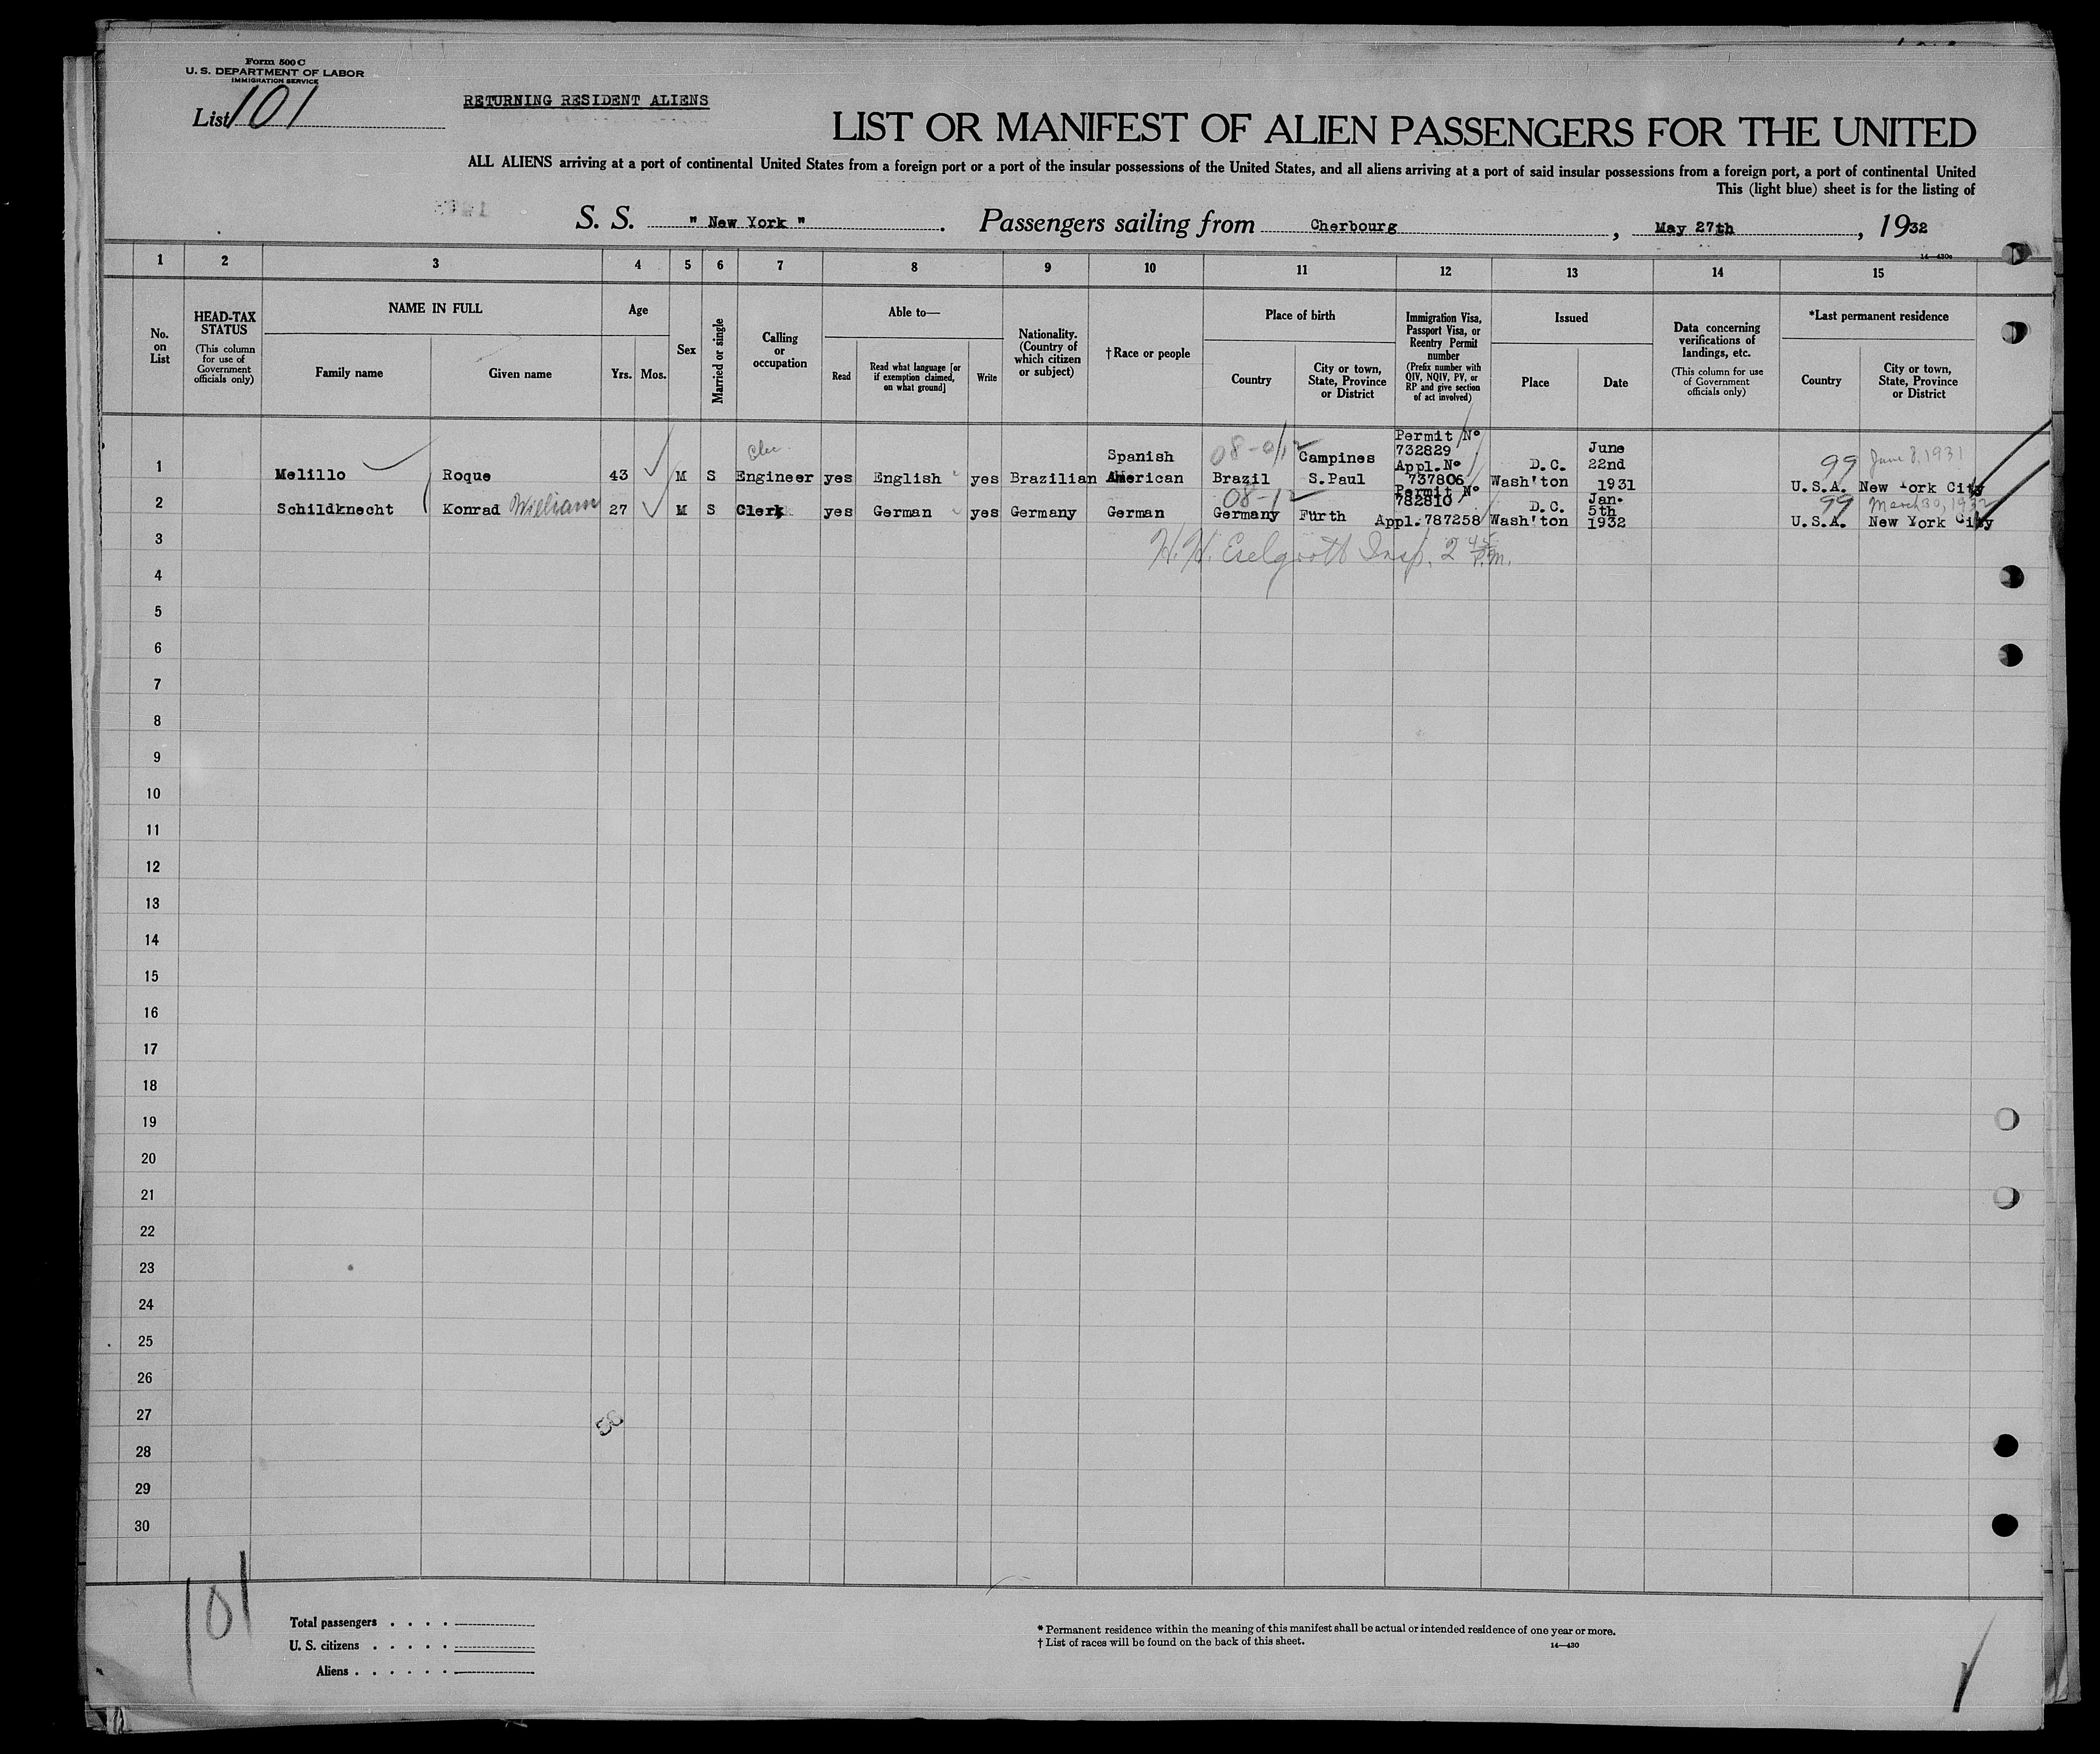 Form 500 C
U. S. DEPARTMENT OF LABOR
IMMIGRATION SERVICE
List 101
RETURNING RESIDENT ALIENS
LIST OR MANIFEST OF ALIEN PASSENGERS FOR THE UNITED
ALL ALIENS arriving at a port of continental United States from a foreign port or a port of the insular possessions of the United States, and all aliens arriving at a port of said insular possessions from a foreign port, a port of continental United
This (light blue) sheet is for the listing of
S. S. " New York ". Passengers sailing from Cherbourg, May 27th, 1932
14—430c
1 2 3 4 5 6 7 8 9 10 11 12 13 14 15
No. on List
HEAD-TAX STATUS
(This column for use of Government officials only)
NAME IN FULL
Family name
Given name
Age
Yrs.
Mos.
Sex
Married or single
Calling or occupation
Able to—
Read
Read what language [or if exemption claimed, on what ground]
Write
Nationality. (Country of which citizen or subject)
†Race or people
Place of birth
Country
City or town, State, Province or District
Immigration Visa, Passport Visa, or Reentry Permit number
(Prefix number with QIV, NQIV, PV, or RP and give section of act involved)
Issued
Place
Date
Data concerning verifications of landings, etc.
(This column for use of Government officials only)
*Last permanent residence
Country
City or town, State, Province or District
1 Melillo Roque 43 M S Elec. Engineer yes English yes Brazilian Spanish American Brazil Campines S.Paul Permit No 732829 Appl.No 737806 D.C. Wash'ton June 22nd 1931 99 June 8, 1931 U.S.A. New York City
2 Schildknecht Konrad William 27 M S Clerk yes German yes Germany German 08-12 Germany Furth Permit No 782810 Appl.787258 D.C. Wash'ton Jan. 5th 1932 99 March 30, 1932 U.S.A. New York City
3 Insp. 2 45 P.M.
4
5
6
7
8
9
10
11
12
13
14
15
16
17
18
19
20
21
22
23
24
25
26
27
28
29
30
101
Total passengers . . . .
U. S. citizens . . . . .
Aliens . . . . . .
* Permanent residence within the meaning of this manifest shall be actual or intended residence of one year or more.
† List of races will be found on the back of this sheet.
14—430